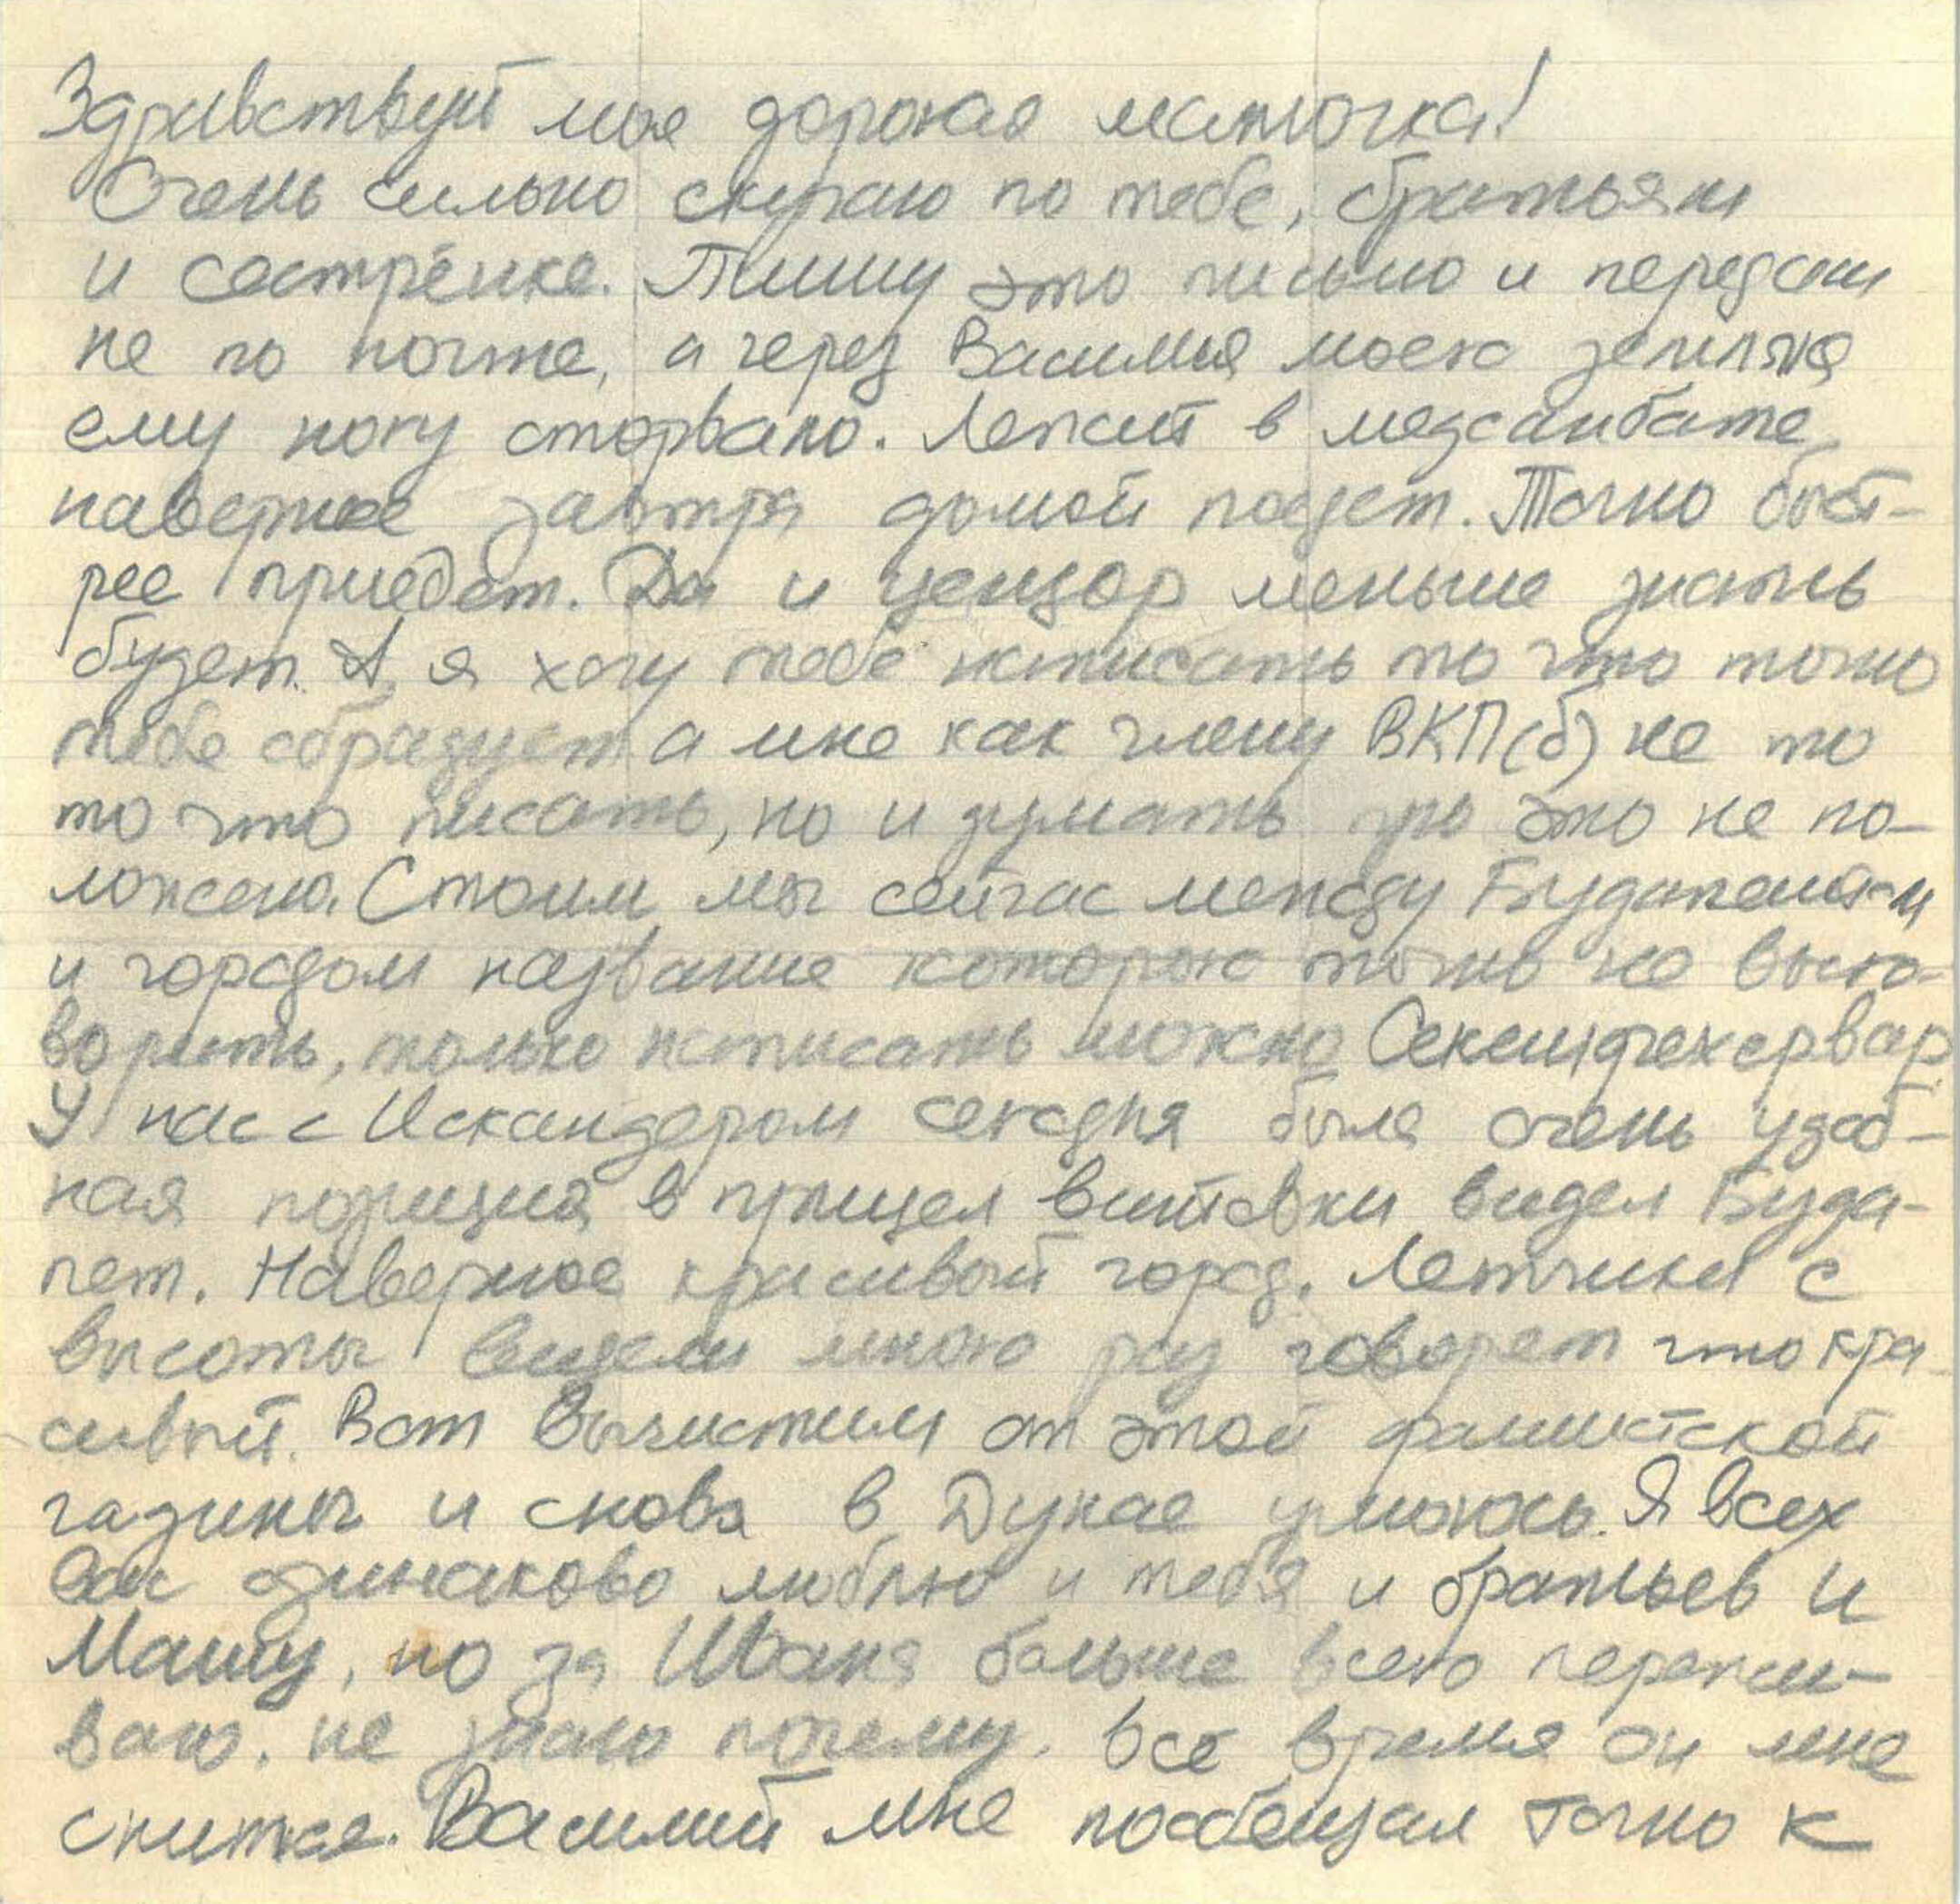 Здравствуй моя дорогая маточка!
Очень сильно скучаю по тебе, братьям
и сестрёнке. Пишу это письмо и передам
не по почте, а через Василия моего земляка
ему ногу оторвало. Лежит в медсанбате,
наверное завтра домой поедет. Точно быст-
рее приедет. Да и цензор меньше знать
будет. А я хочу тебе написать то что точно
тебе обрадует а мне как члену ВКП(б) не то
то что писать, но и думать про это не по-
ложено. Стоим мы сейчас между Будапештом
и городом название которого точно не выго-
ворить, только написать можно Секешфехервар
У нас с Искандером сегодня была очень удоб-
ная позиция в прицел винтовки видел Буда-
пешт. Наверное красивый город. Летчики с
высоты видели много раз говорят что кра-
сивый. Вот вычистим от этой фашистской
гадины и снова в Дунае умоюсь. Я всех
вас одинаково люблю и тебя и братьев и
Машу, но за Ивана больше всего пережи-
ваю, не знаю почему. всё время он мне
снится. Василий мне пообещал точно к